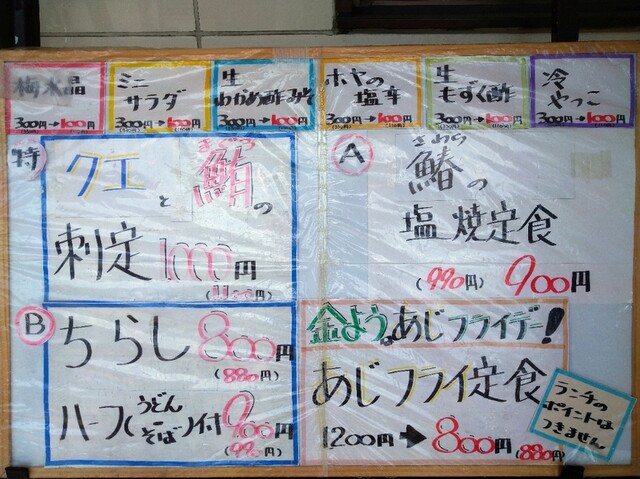 梅水晶
300円→100円
ミニ
サラダ
300円→100円
生
わかめ酢みそ
300円→100円
ホヤの
塩辛
300円→100円
生
もずく酢
300円→100円
冷
やっこ
300円→100円
特
クエと鮪の
まぐろ
刺定 1000円
(1100円)
A
さわら
鰆の
塩焼定食
(990円) 900円
B
ちらし 800円
(880円)
ハーフ(うどん
そば)付 900円
(990円)
金ようはあじフライデー!
あじフライ定食
1200円→800円
(880円)
ランチの
ポイントは
つきません